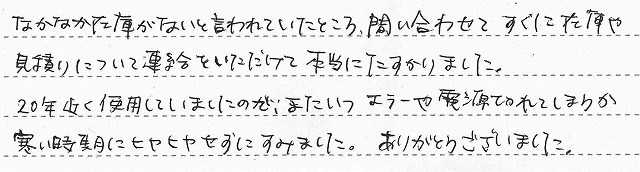 なかなか在庫がないと言われていたところ、問い合わせて すぐに在庫や
見積りについて連絡をいただけて 本当にたすかりました。
20年近く使用していましたので、またいつ エラーや電源切れてしまうか
寒い時期にヒヤヒヤせずにすみました。 ありがとうございました。